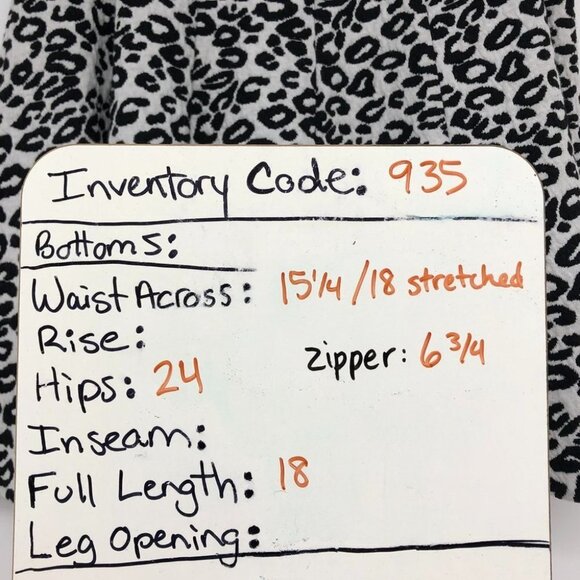 Inventory Code: 935
Bottoms:
Waist Across: 15 1/4 / 18 stretched
Rise:
zipper: 6 3/4
Hips: 24
Inseam:
Full Length: 18
Leg Opening: